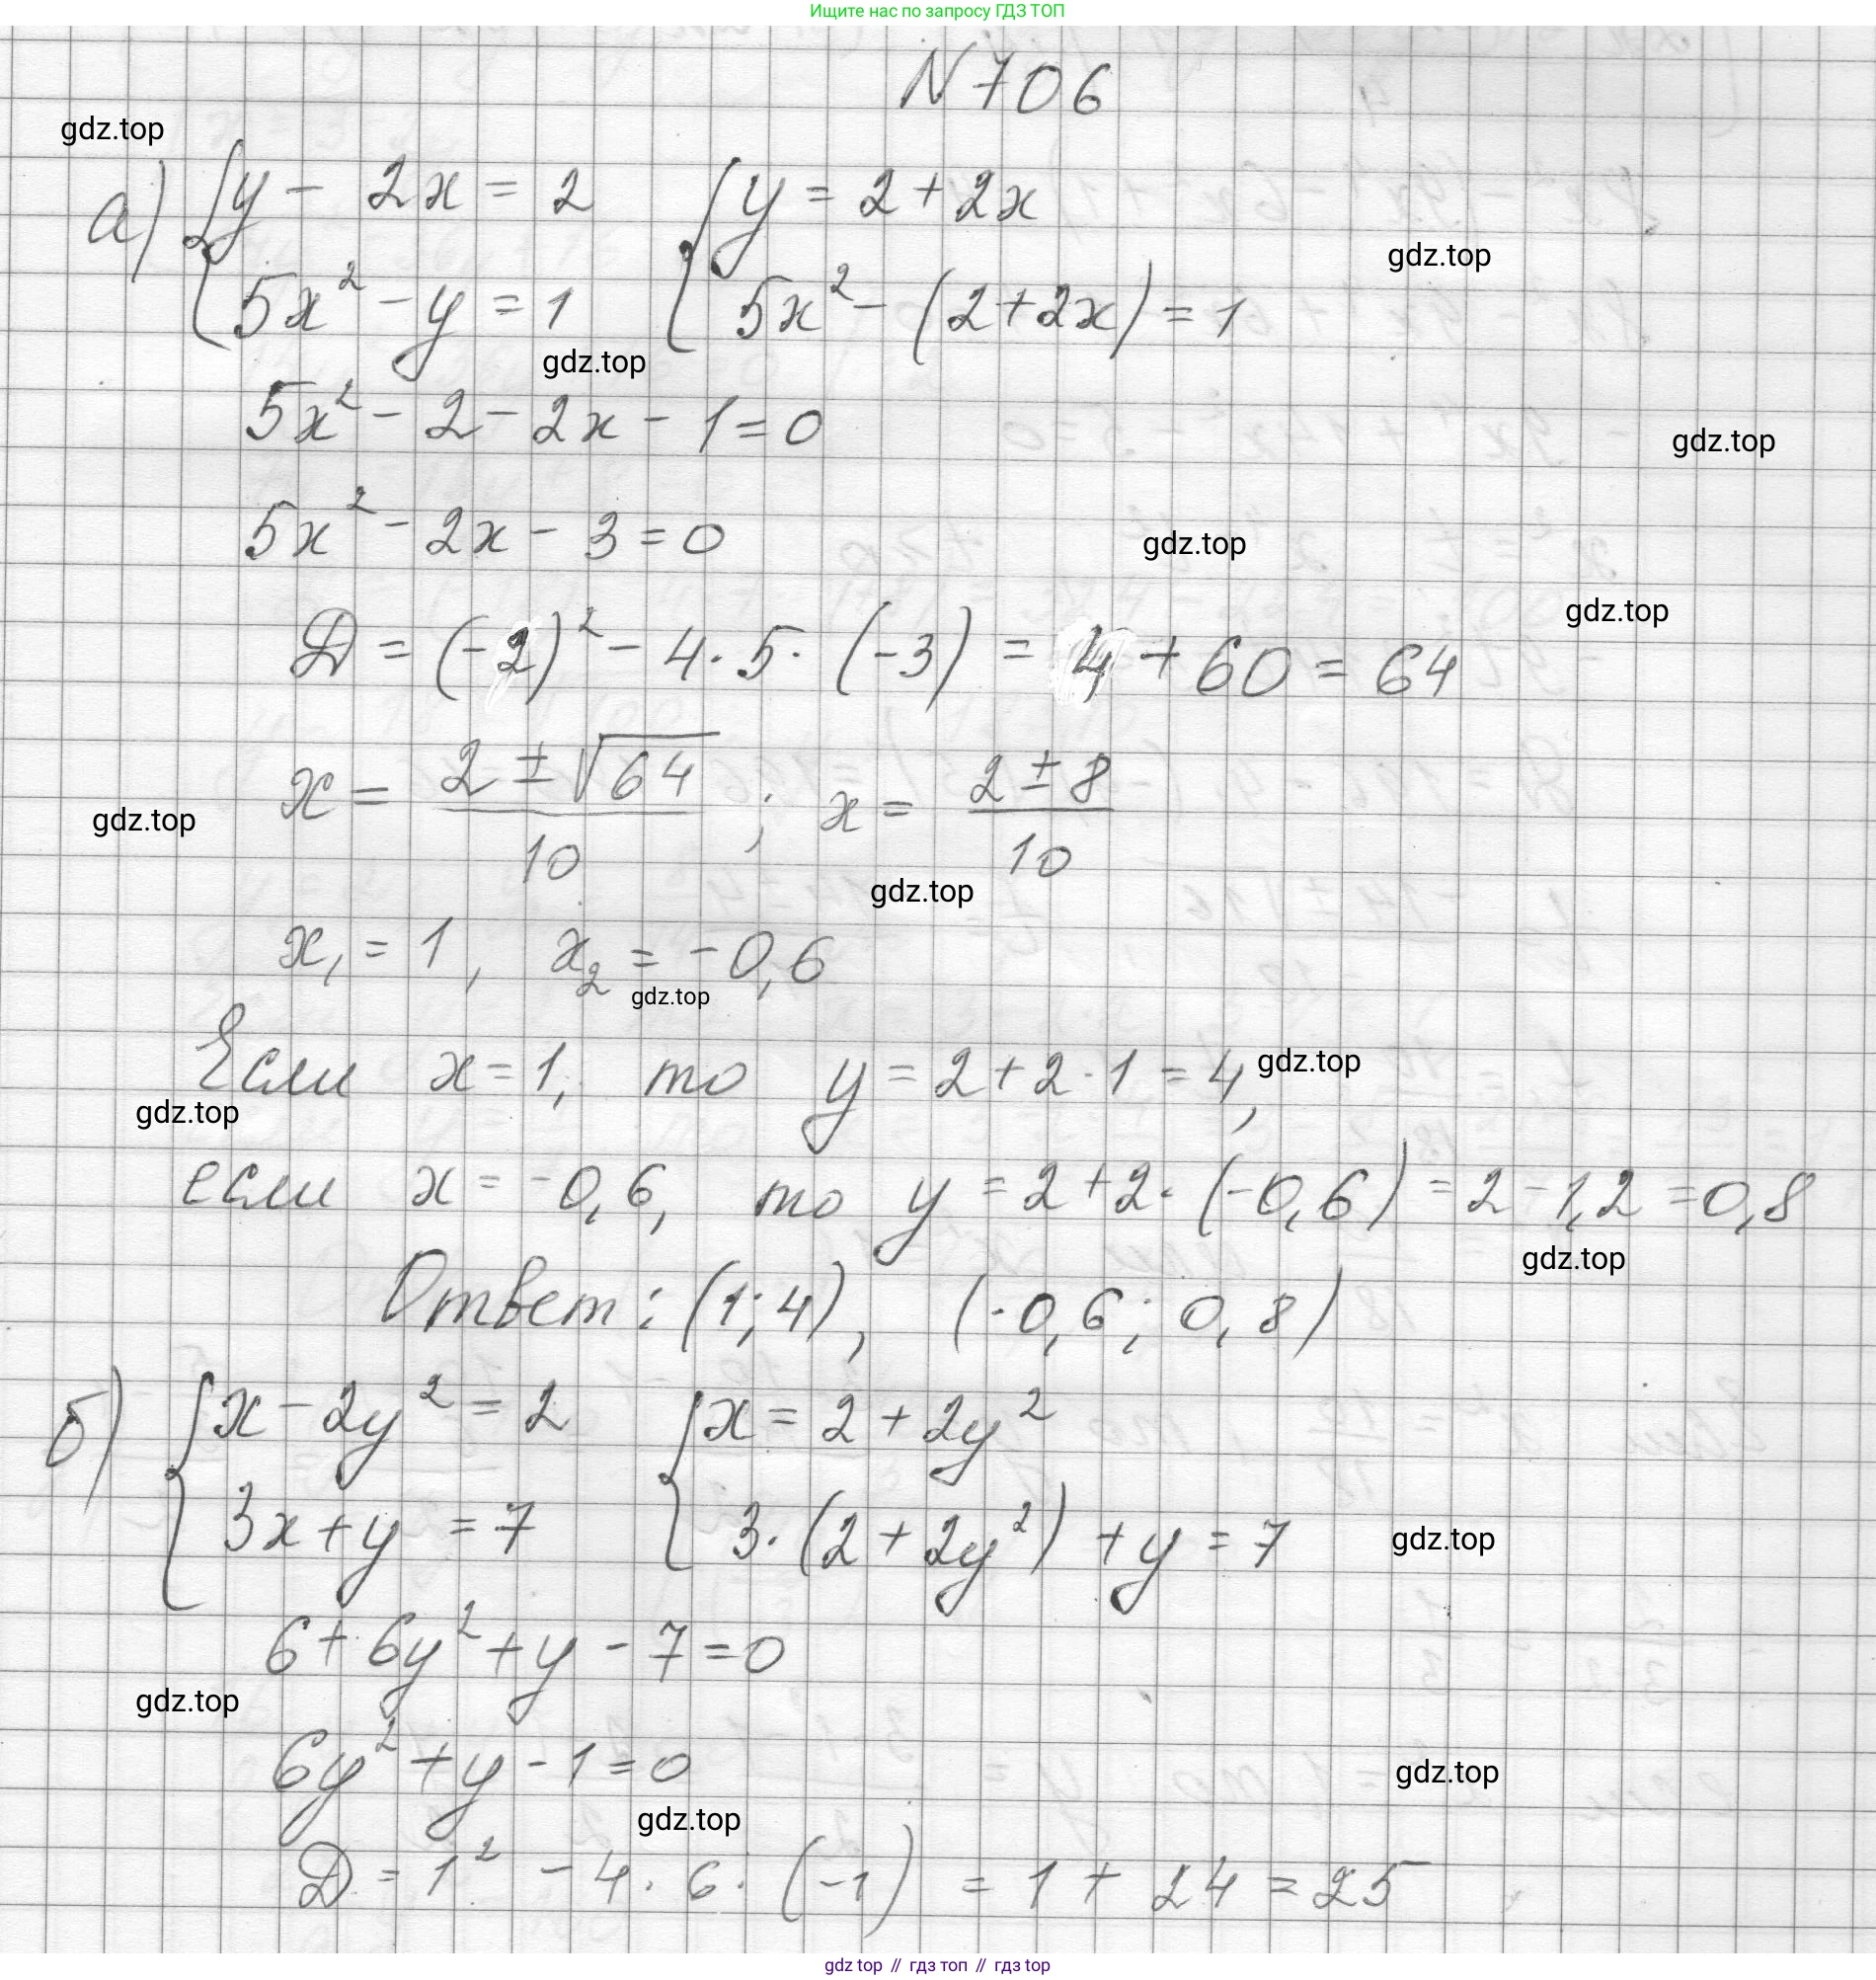 Ищите нас по запросу ГДЗ ТОП
N 706
gdz.top
а) { y - 2x = 2 { y = 2 + 2x
gdz.top
5x² - y = 1 5x² - (2 + 2x) = 1
gdz.top
5x² - 2 - 2x - 1 = 0
gdz.top
5x² - 2x - 3 = 0
gdz.top
gdz.top
D = (-2)² - 4 · 5 · (-3) = 4 + 60 = 64
x = (2 ± √64)/10 ; x = (2 ± 8)/10
gdz.top
gdz.top
x₁ = 1, x₂ = -0,6
gdz.top
Если x = 1, то y = 2 + 2 · 1 = 4,
gdz.top
gdz.top
если x = -0,6, то y = 2 + 2 · (-0,6) = 2 - 1,2 = 0,8
gdz.top
Ответ: (1; 4), (-0,6; 0,8)
б) { x - 2y² = 2 { x = 2 + 2y²
3x + y = 7 3 · (2 + 2y²) + y = 7
gdz.top
6 + 6y² + y - 7 = 0
gdz.top
6y² + y - 1 = 0
gdz.top
gdz.top
D = 1² - 4 · 6 · (-1) = 1 + 24 = 25
gdz top // гдз топ // гдз top